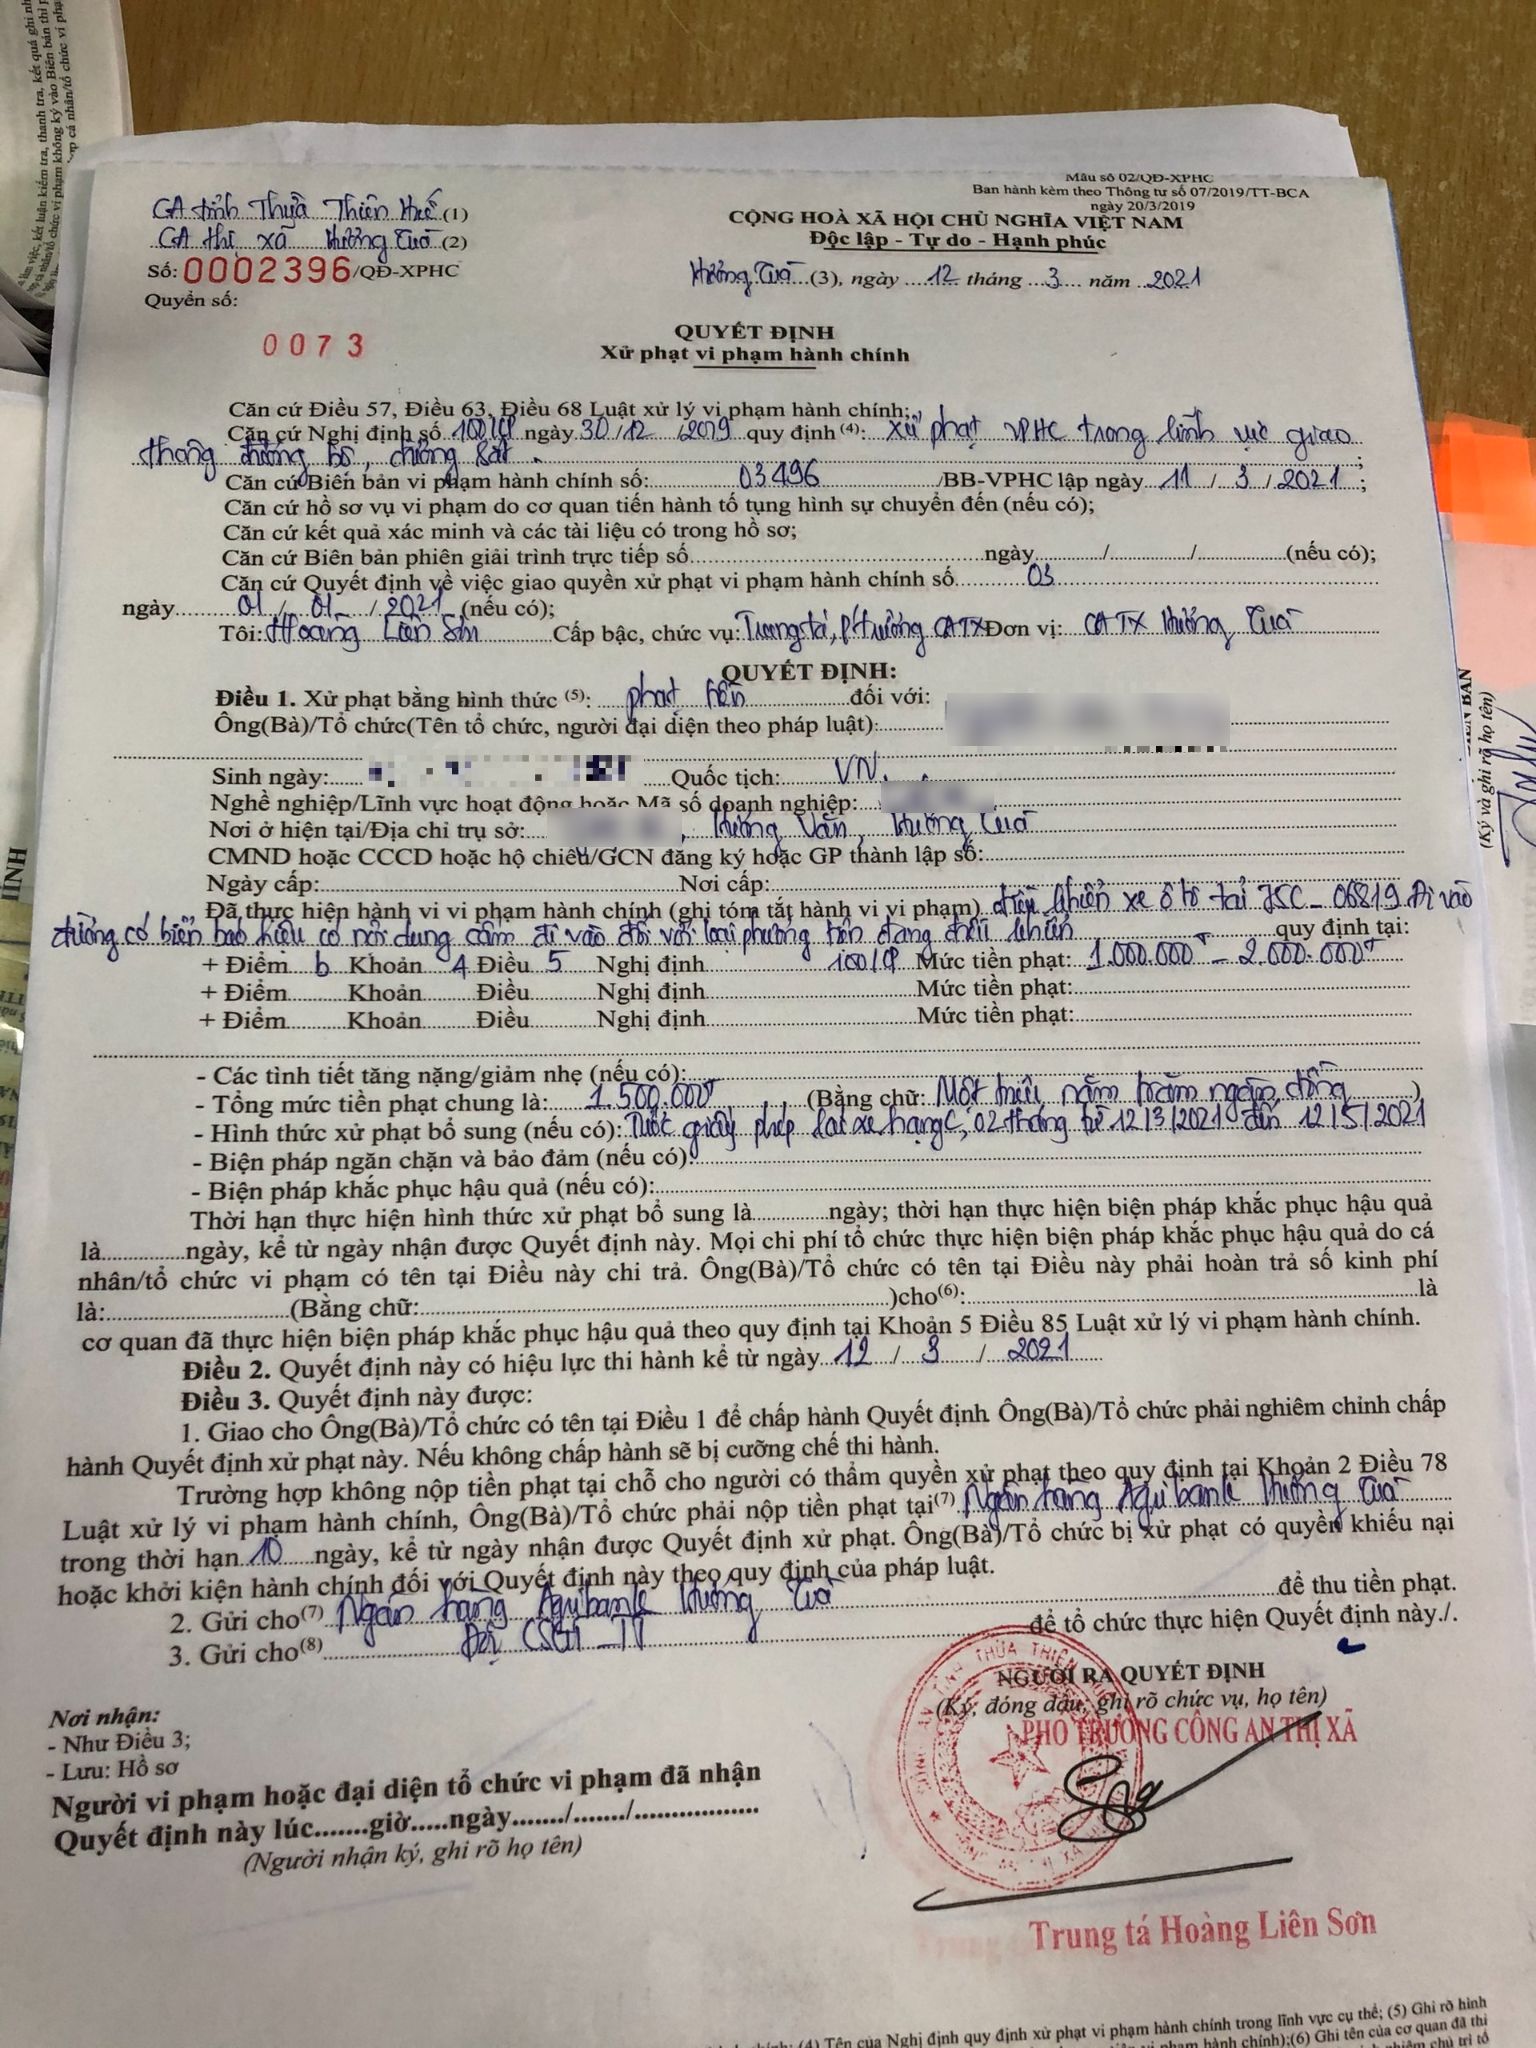 Mẫu số 02/QĐ-XPHC
Ban hành kèm theo Thông tư số 07/2019/TT-BCA
ngày 20/3/2019
CA tỉnh Thừa Thiên Huế (1)
CA thị xã Hương Trà (2)
Số: 0002396/QĐ-XPHC
Quyển số:
0073
CỘNG HOÀ XÃ HỘI CHỦ NGHĨA VIỆT NAM
Độc lập - Tự do - Hạnh phúc
Hương Trà (3), ngày 12 tháng 3 năm 2021
QUYẾT ĐỊNH
Xử phạt vi phạm hành chính
Căn cứ Điều 57, Điều 63, Điều 68 Luật xử lý vi phạm hành chính;
Căn cứ Nghị định số 100/CP ngày 30/12/2019 quy định (4): xử phạt VPHC trong lĩnh vực giao
thông đường bộ, đường sắt.;
Căn cứ Biên bản vi phạm hành chính số: 03496 /BB-VPHC lập ngày 11/3/2021;
Căn cứ hồ sơ vụ vi phạm do cơ quan tiến hành tố tụng hình sự chuyển đến (nếu có);
Căn cứ kết quả xác minh và các tài liệu có trong hồ sơ;
Căn cứ Biên bản phiên giải trình trực tiếp số............ngày......../......../........(nếu có);
Căn cứ Quyết định về việc giao quyền xử phạt vi phạm hành chính số 03
ngày 01/01/2021 (nếu có);
Tôi: Hoàng Liên Sơn Cấp bậc, chức vụ: Trung tá, P trưởng CATX Đơn vị: CATX Hương Trà
QUYẾT ĐỊNH:
Điều 1. Xử phạt bằng hình thức (5): phạt tiền đối với:
Ông(Bà)/Tổ chức(Tên tổ chức, người đại diện theo pháp luật):
Sinh ngày: Quốc tịch: VN.
Nghề nghiệp/Lĩnh vực hoạt động hoặc Mã số doanh nghiệp:
Nơi ở hiện tại/Địa chỉ trụ sở: , Hương Văn, Hương Trà
CMND hoặc CCCD hoặc hộ chiếu/GCN đăng ký hoặc GP thành lập số:
Ngày cấp: Nơi cấp:
Đã thực hiện hành vi vi phạm hành chính (ghi tóm tắt hành vi vi phạm) điều khiển xe ô tô tải 75C-06819 đi vào
đường có biển báo hiệu có nội dung cấm đi vào đối với loại phương tiện đang điều khiển quy định tại:
+ Điểm b Khoản 4 Điều 5 Nghị định 100/CP Mức tiền phạt: 1.000.000đ - 2.000.000đ
+ Điểm Khoản Điều Nghị định Mức tiền phạt:
+ Điểm Khoản Điều Nghị định Mức tiền phạt:
- Các tình tiết tăng nặng/giảm nhẹ (nếu có):
- Tổng mức tiền phạt chung là: 1.500.000đ (Bằng chữ: Một triệu, năm trăm ngàn, đồng)
- Hình thức xử phạt bổ sung (nếu có): Tước giấy phép lái xe hạng C, 02 tháng từ 12/3/2021 đến 12/5/2021
- Biện pháp ngăn chặn và bảo đảm (nếu có):
- Biện pháp khắc phục hậu quả (nếu có):
Thời hạn thực hiện hình thức xử phạt bổ sung là..........ngày; thời hạn thực hiện biện pháp khắc phục hậu quả
là..........ngày, kể từ ngày nhận được Quyết định này. Mọi chi phí tổ chức thực hiện biện pháp khắc phục hậu quả do cá
nhân/tổ chức vi phạm có tên tại Điều này chi trả. Ông(Bà)/Tổ chức có tên tại Điều này phải hoàn trả số kinh phí
là:..........(Bằng chữ:..........)cho(6):..........là
cơ quan đã thực hiện biện pháp khắc phục hậu quả theo quy định tại Khoản 5 Điều 85 Luật xử lý vi phạm hành chính.
Điều 2. Quyết định này có hiệu lực thi hành kể từ ngày 12/3/2021
Điều 3. Quyết định này được:
1. Giao cho Ông(Bà)/Tổ chức có tên tại Điều 1 để chấp hành Quyết định. Ông(Bà)/Tổ chức phải nghiêm chỉnh chấp
hành Quyết định xử phạt này. Nếu không chấp hành sẽ bị cưỡng chế thi hành.
Trường hợp không nộp tiền phạt tại chỗ cho người có thẩm quyền xử phạt theo quy định tại Khoản 2 Điều 78
Luật xử lý vi phạm hành chính, Ông(Bà)/Tổ chức phải nộp tiền phạt tại(7) Ngân hàng Agribank Hương Trà
trong thời hạn 10 ngày, kể từ ngày nhận được Quyết định xử phạt. Ông(Bà)/Tổ chức bị xử phạt có quyền khiếu nại
hoặc khởi kiện hành chính đối với Quyết định này theo quy định của pháp luật.
2. Gửi cho(7) Ngân hàng Agribank Hương Trà để thu tiền phạt.
3. Gửi cho(8) Đội CSGT-TT để tổ chức thực hiện Quyết định này./.
Nơi nhận:
- Như Điều 3;
- Lưu: Hồ sơ
Người vi phạm hoặc đại diện tổ chức vi phạm đã nhận
Quyết định này lúc.......giờ.....ngày......./......./.................
(Người nhận ký, ghi rõ họ tên)
NGƯỜI RA QUYẾT ĐỊNH
(Ký, đóng dấu, ghi rõ chức vụ, họ tên)
PHÓ TRƯỞNG CÔNG AN THỊ XÃ
Trung tá Hoàng Liên Sơn
(4) Tên của Nghị định quy định xử phạt vi phạm hành chính trong lĩnh vực cụ thể; (5) Ghi rõ hình
vi phạm hành chính);(6) Ghi tên của cơ quan đã thi
(Ký và ghi rõ họ tên)